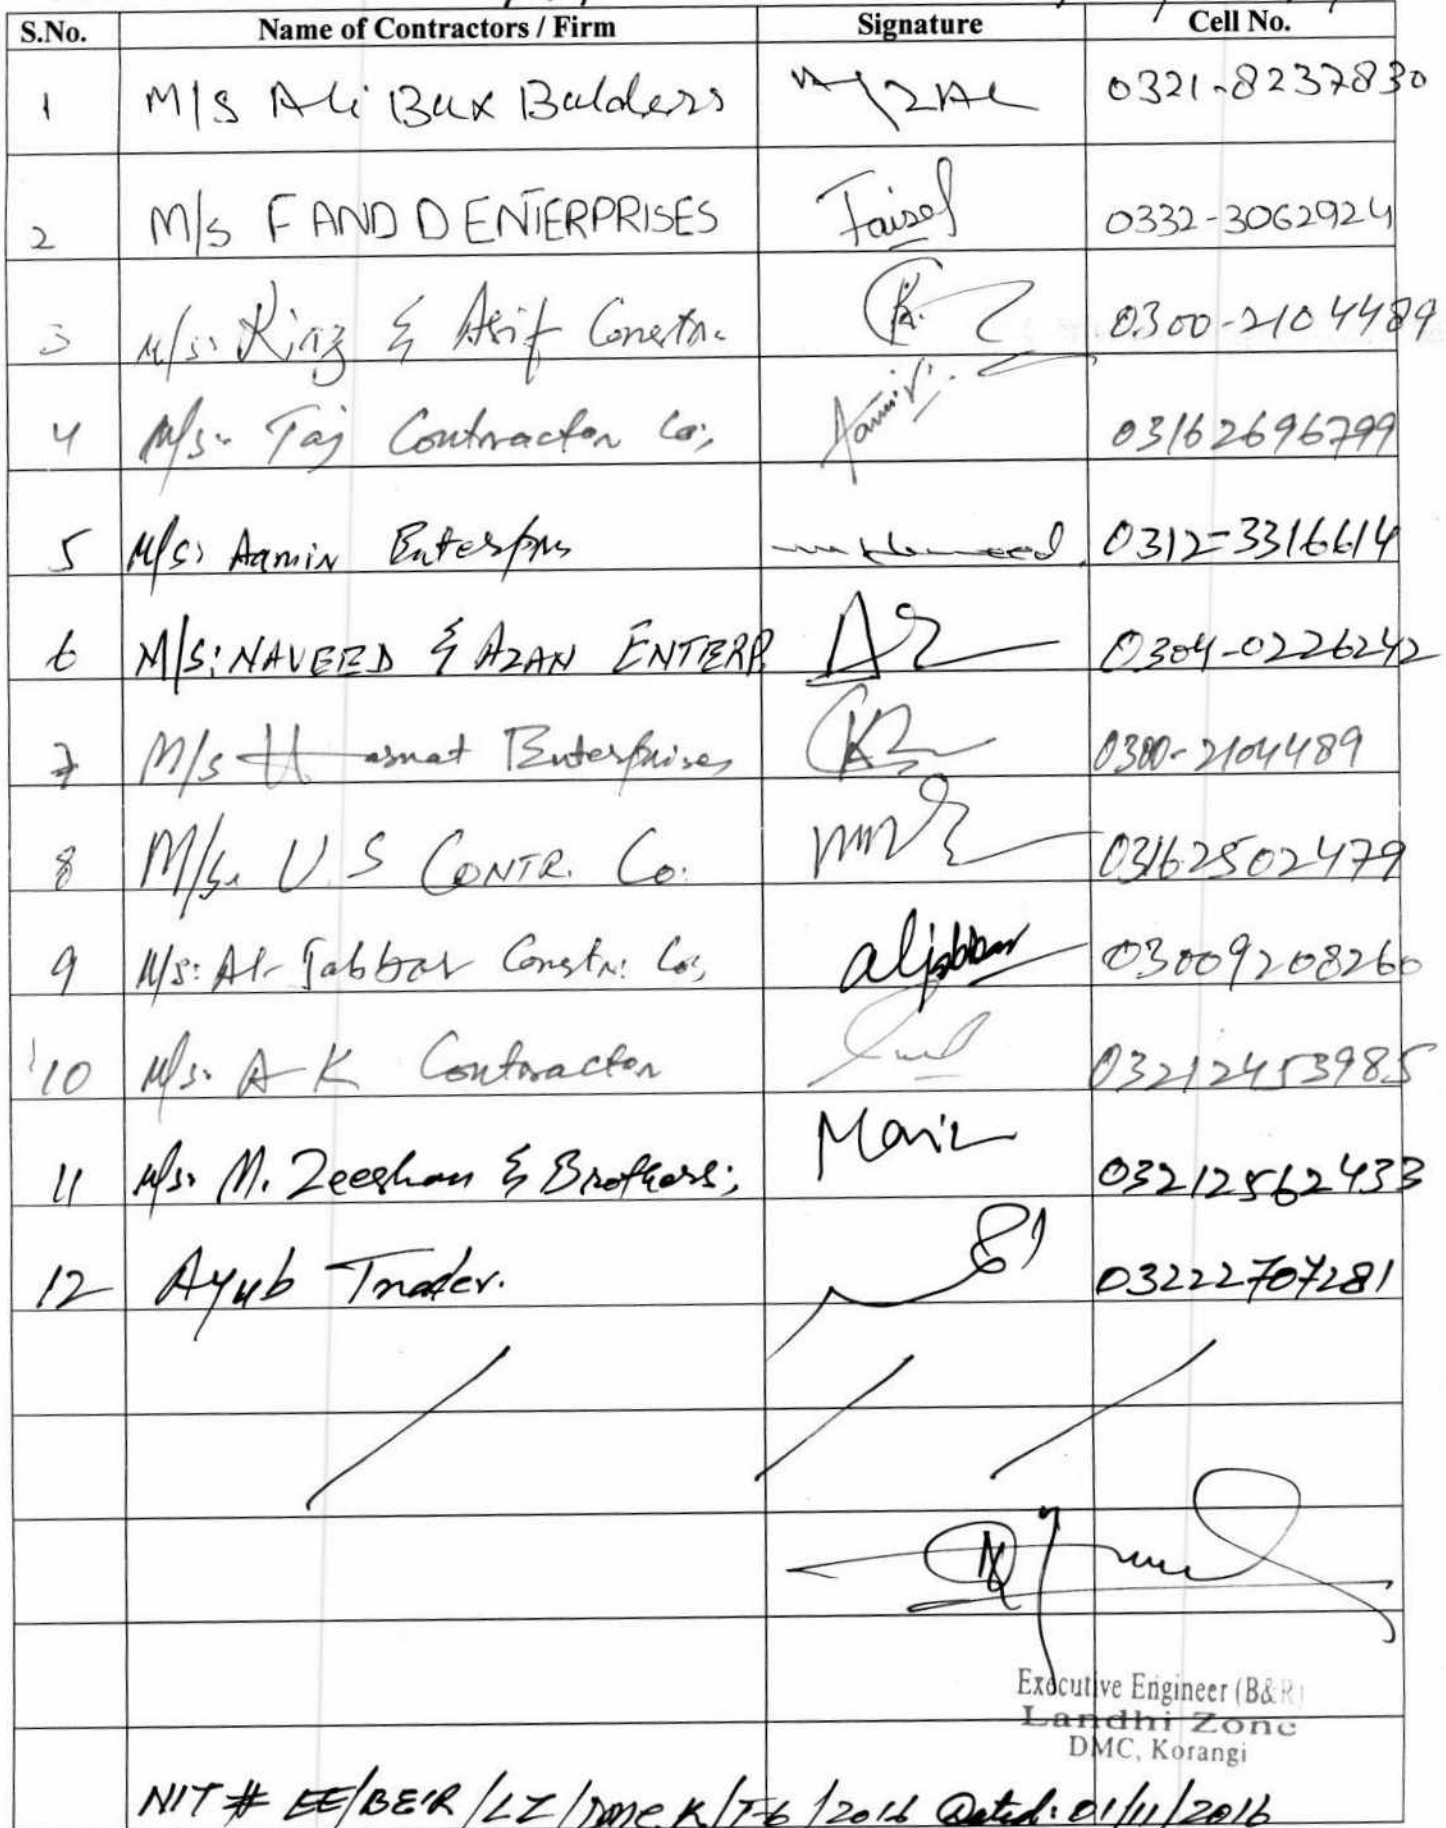 S.No. Name of Contractors / Firm Signature Cell No.
1 M/S Ali Bux Bulders 0321-8237830
2 M/s F AND D ENTERPRISES Faisal 0332-3062924
3 M/s: King & Asif Constn: 0300-2104489
4 M/s: Taj Contractor Co; Aamir 03162696799
5 M/s: Aamir 0312-3316614
6 M/S: NAVEED & AZAN ENTERP. 0304-0226242
7 M/s Hasnat Enterprises 0300-2104489
8 M/s. U.S CONTR. Co. 03162502479
9 M/s: Al-Jabbar Constn: Co; aljabbar 03009208260
10 M/s. A K Contractor 03212453985
11 M/s: M. Zeeshan & Brothers; 03212562433
12 Ayub Trader. 03222707281
Executive Engineer (B&R)
Landhi Zone
DMC, Korangi
NIT # EE/B&R/LZ/DMC.K/T-6/2016 Dated: 01/11/2016